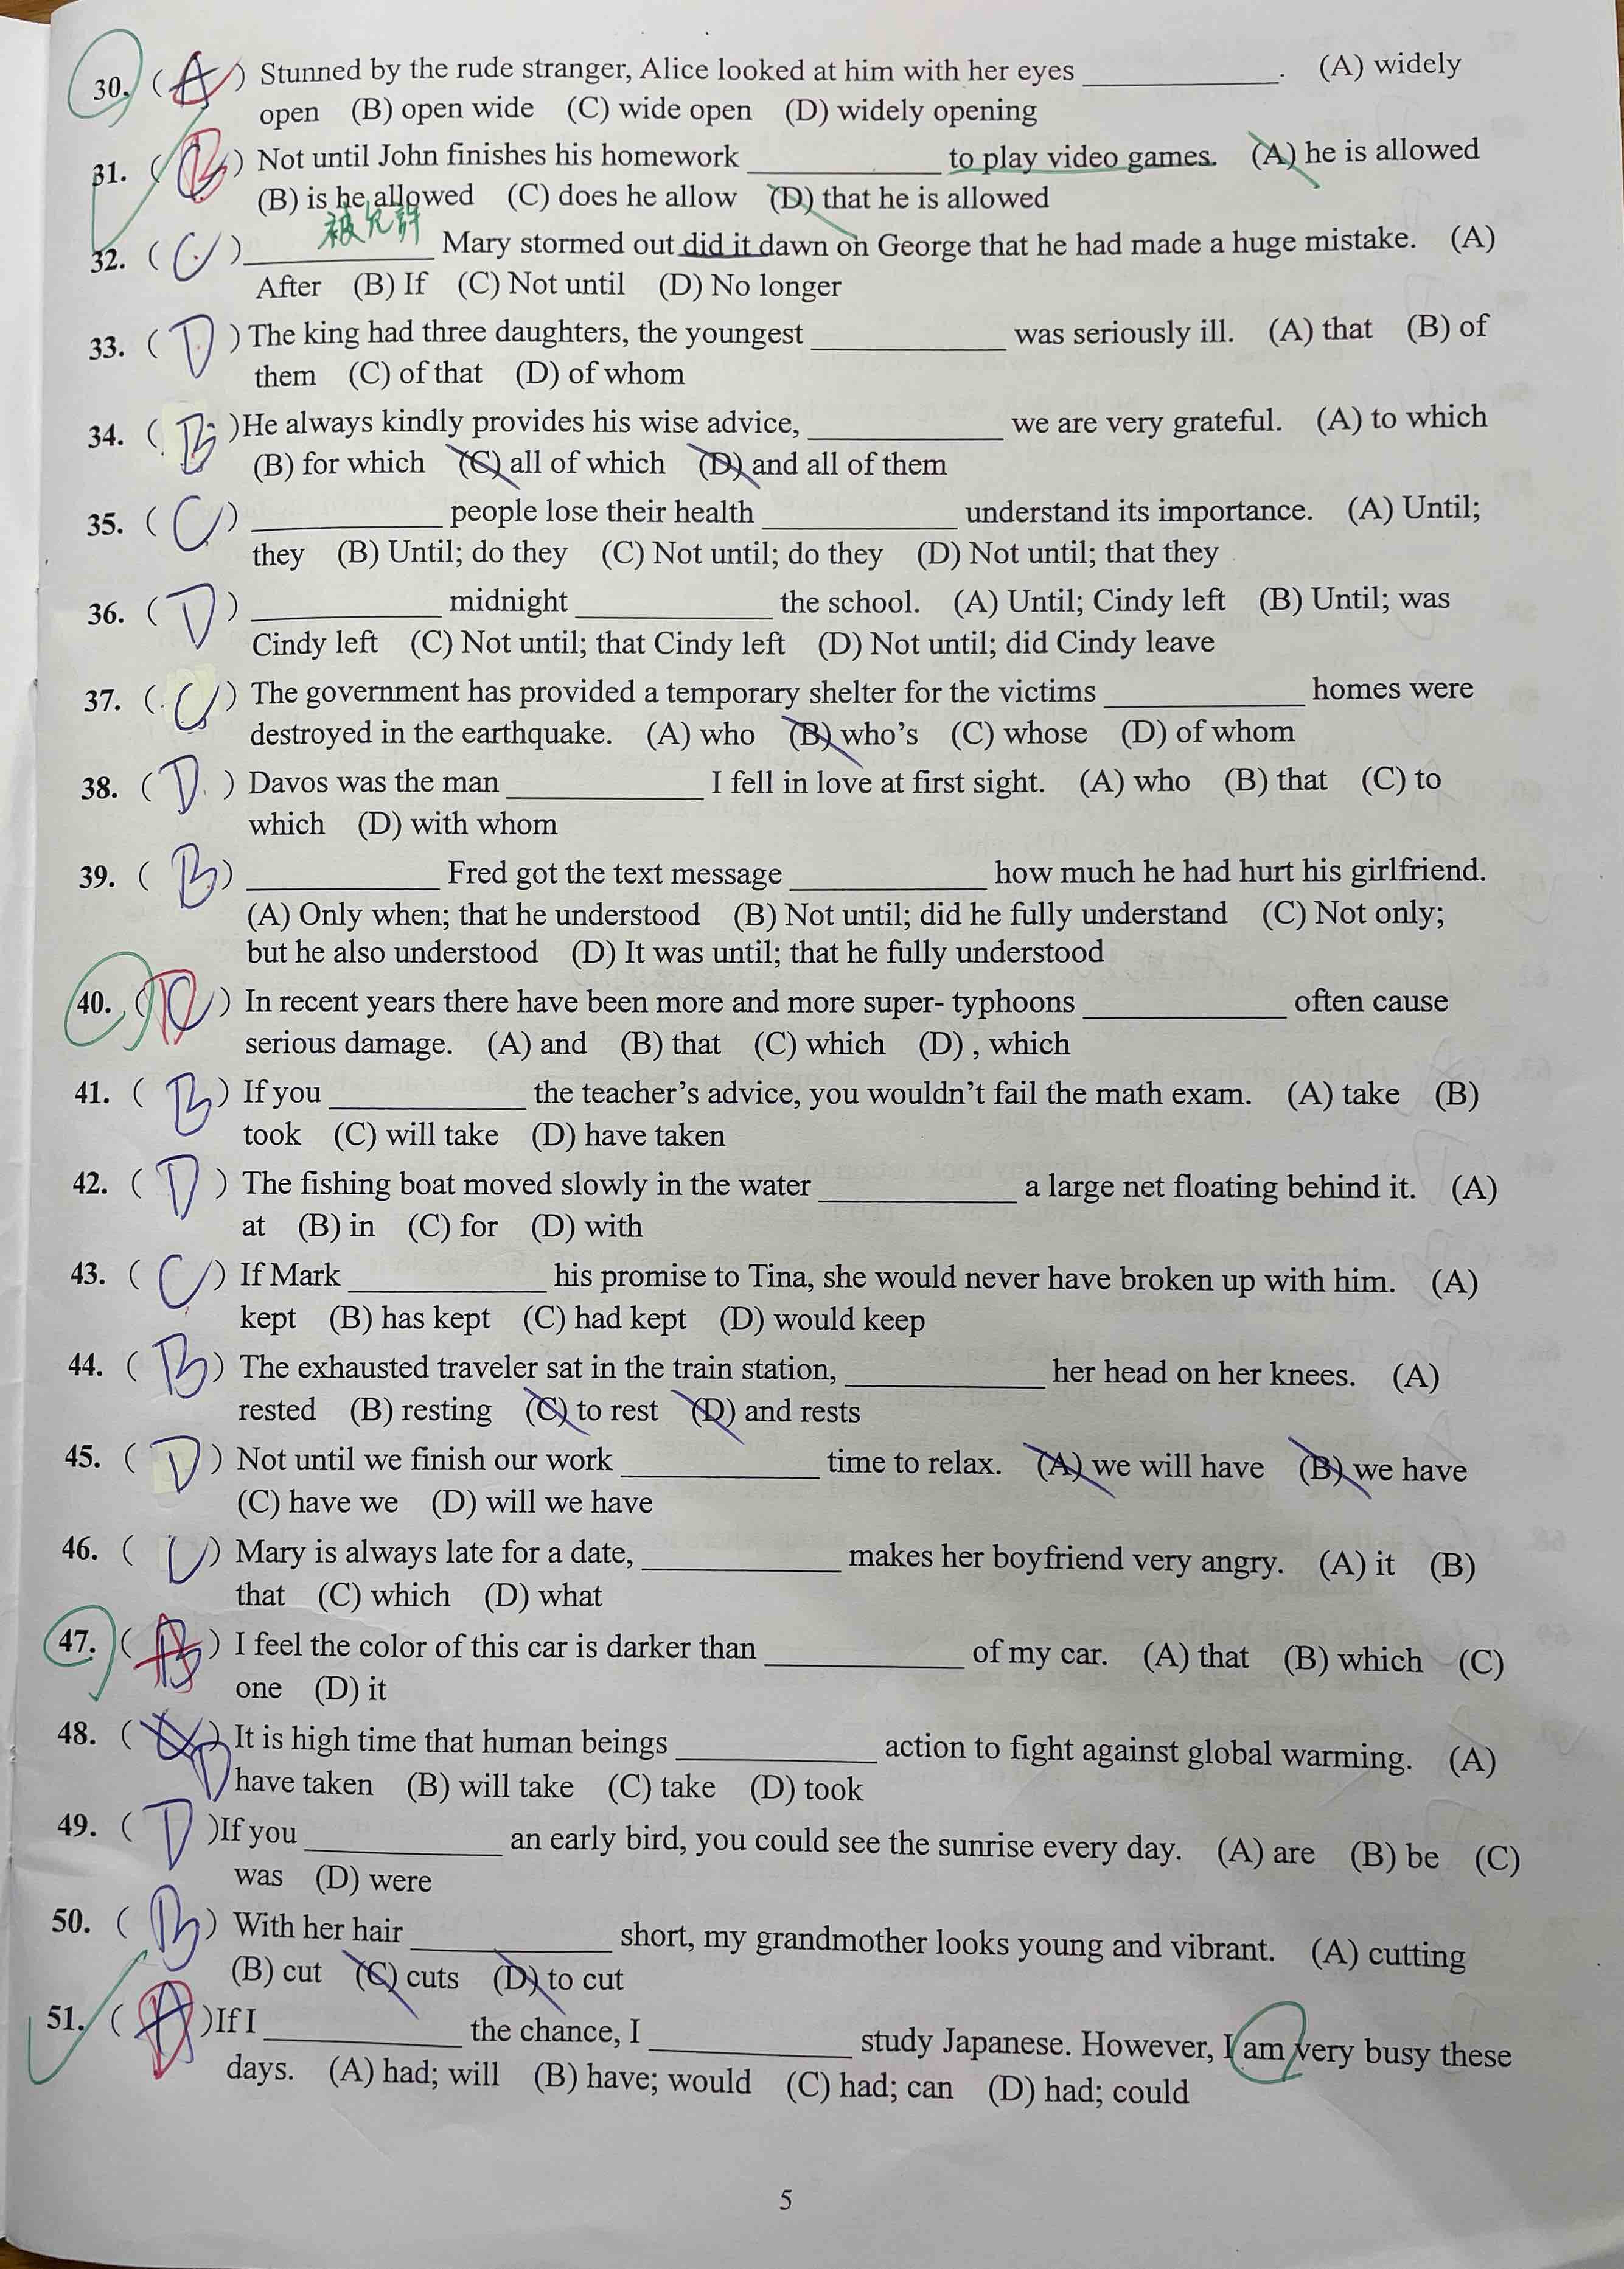 30. ( A ) Stunned by the rude stranger, Alice looked at him with her eyes ____________. (A) widely
open (B) open wide (C) wide open (D) widely opening
31. ( B ) Not until John finishes his homework ____________ to play video games. (A) he is allowed
(B) is he allowed (C) does he allow (D) that he is allowed
被允許
32. ( C ) ____________ Mary stormed out did it dawn on George that he had made a huge mistake. (A)
After (B) If (C) Not until (D) No longer
33. ( D ) The king had three daughters, the youngest ____________ was seriously ill. (A) that (B) of
them (C) of that (D) of whom
34. ( B )He always kindly provides his wise advice, ____________ we are very grateful. (A) to which
(B) for which (C) all of which (D) and all of them
35. ( C ) ____________ people lose their health ____________ understand its importance. (A) Until;
they (B) Until; do they (C) Not until; do they (D) Not until; that they
36. ( D ) ____________ midnight ____________ the school. (A) Until; Cindy left (B) Until; was
Cindy left (C) Not until; that Cindy left (D) Not until; did Cindy leave
37. ( C ) The government has provided a temporary shelter for the victims ____________ homes were
destroyed in the earthquake. (A) who (B) who's (C) whose (D) of whom
38. ( D ) Davos was the man ____________ I fell in love at first sight. (A) who (B) that (C) to
which (D) with whom
39. ( B ) ____________ Fred got the text message ____________ how much he had hurt his girlfriend.
(A) Only when; that he understood (B) Not until; did he fully understand (C) Not only;
but he also understood (D) It was until; that he fully understood
40. ( D ) In recent years there have been more and more super- typhoons ____________ often cause
serious damage. (A) and (B) that (C) which (D) , which
41. ( B ) If you ____________ the teacher's advice, you wouldn't fail the math exam. (A) take (B)
took (C) will take (D) have taken
42. ( D ) The fishing boat moved slowly in the water ____________ a large net floating behind it. (A)
at (B) in (C) for (D) with
43. ( C ) If Mark ____________ his promise to Tina, she would never have broken up with him. (A)
kept (B) has kept (C) had kept (D) would keep
44. ( B ) The exhausted traveler sat in the train station, ____________ her head on her knees. (A)
rested (B) resting (C) to rest (D) and rests
45. ( D ) Not until we finish our work ____________ time to relax. (A) we will have (B) we have
(C) have we (D) will we have
46. ( C ) Mary is always late for a date, ____________ makes her boyfriend very angry. (A) it (B)
that (C) which (D) what
47. ( ) I feel the color of this car is darker than ____________ of my car. (A) that (B) which (C)
one (D) it
48. ( D ) It is high time that human beings ____________ action to fight against global warming. (A)
have taken (B) will take (C) take (D) took
49. ( D )If you ____________ an early bird, you could see the sunrise every day. (A) are (B) be (C)
was (D) were
50. ( B ) With her hair ____________ short, my grandmother looks young and vibrant. (A) cutting
(B) cut (C) cuts (D) to cut
51. ( )If I ____________ the chance, I ____________ study Japanese. However, I am very busy these
days. (A) had; will (B) have; would (C) had; can (D) had; could
5